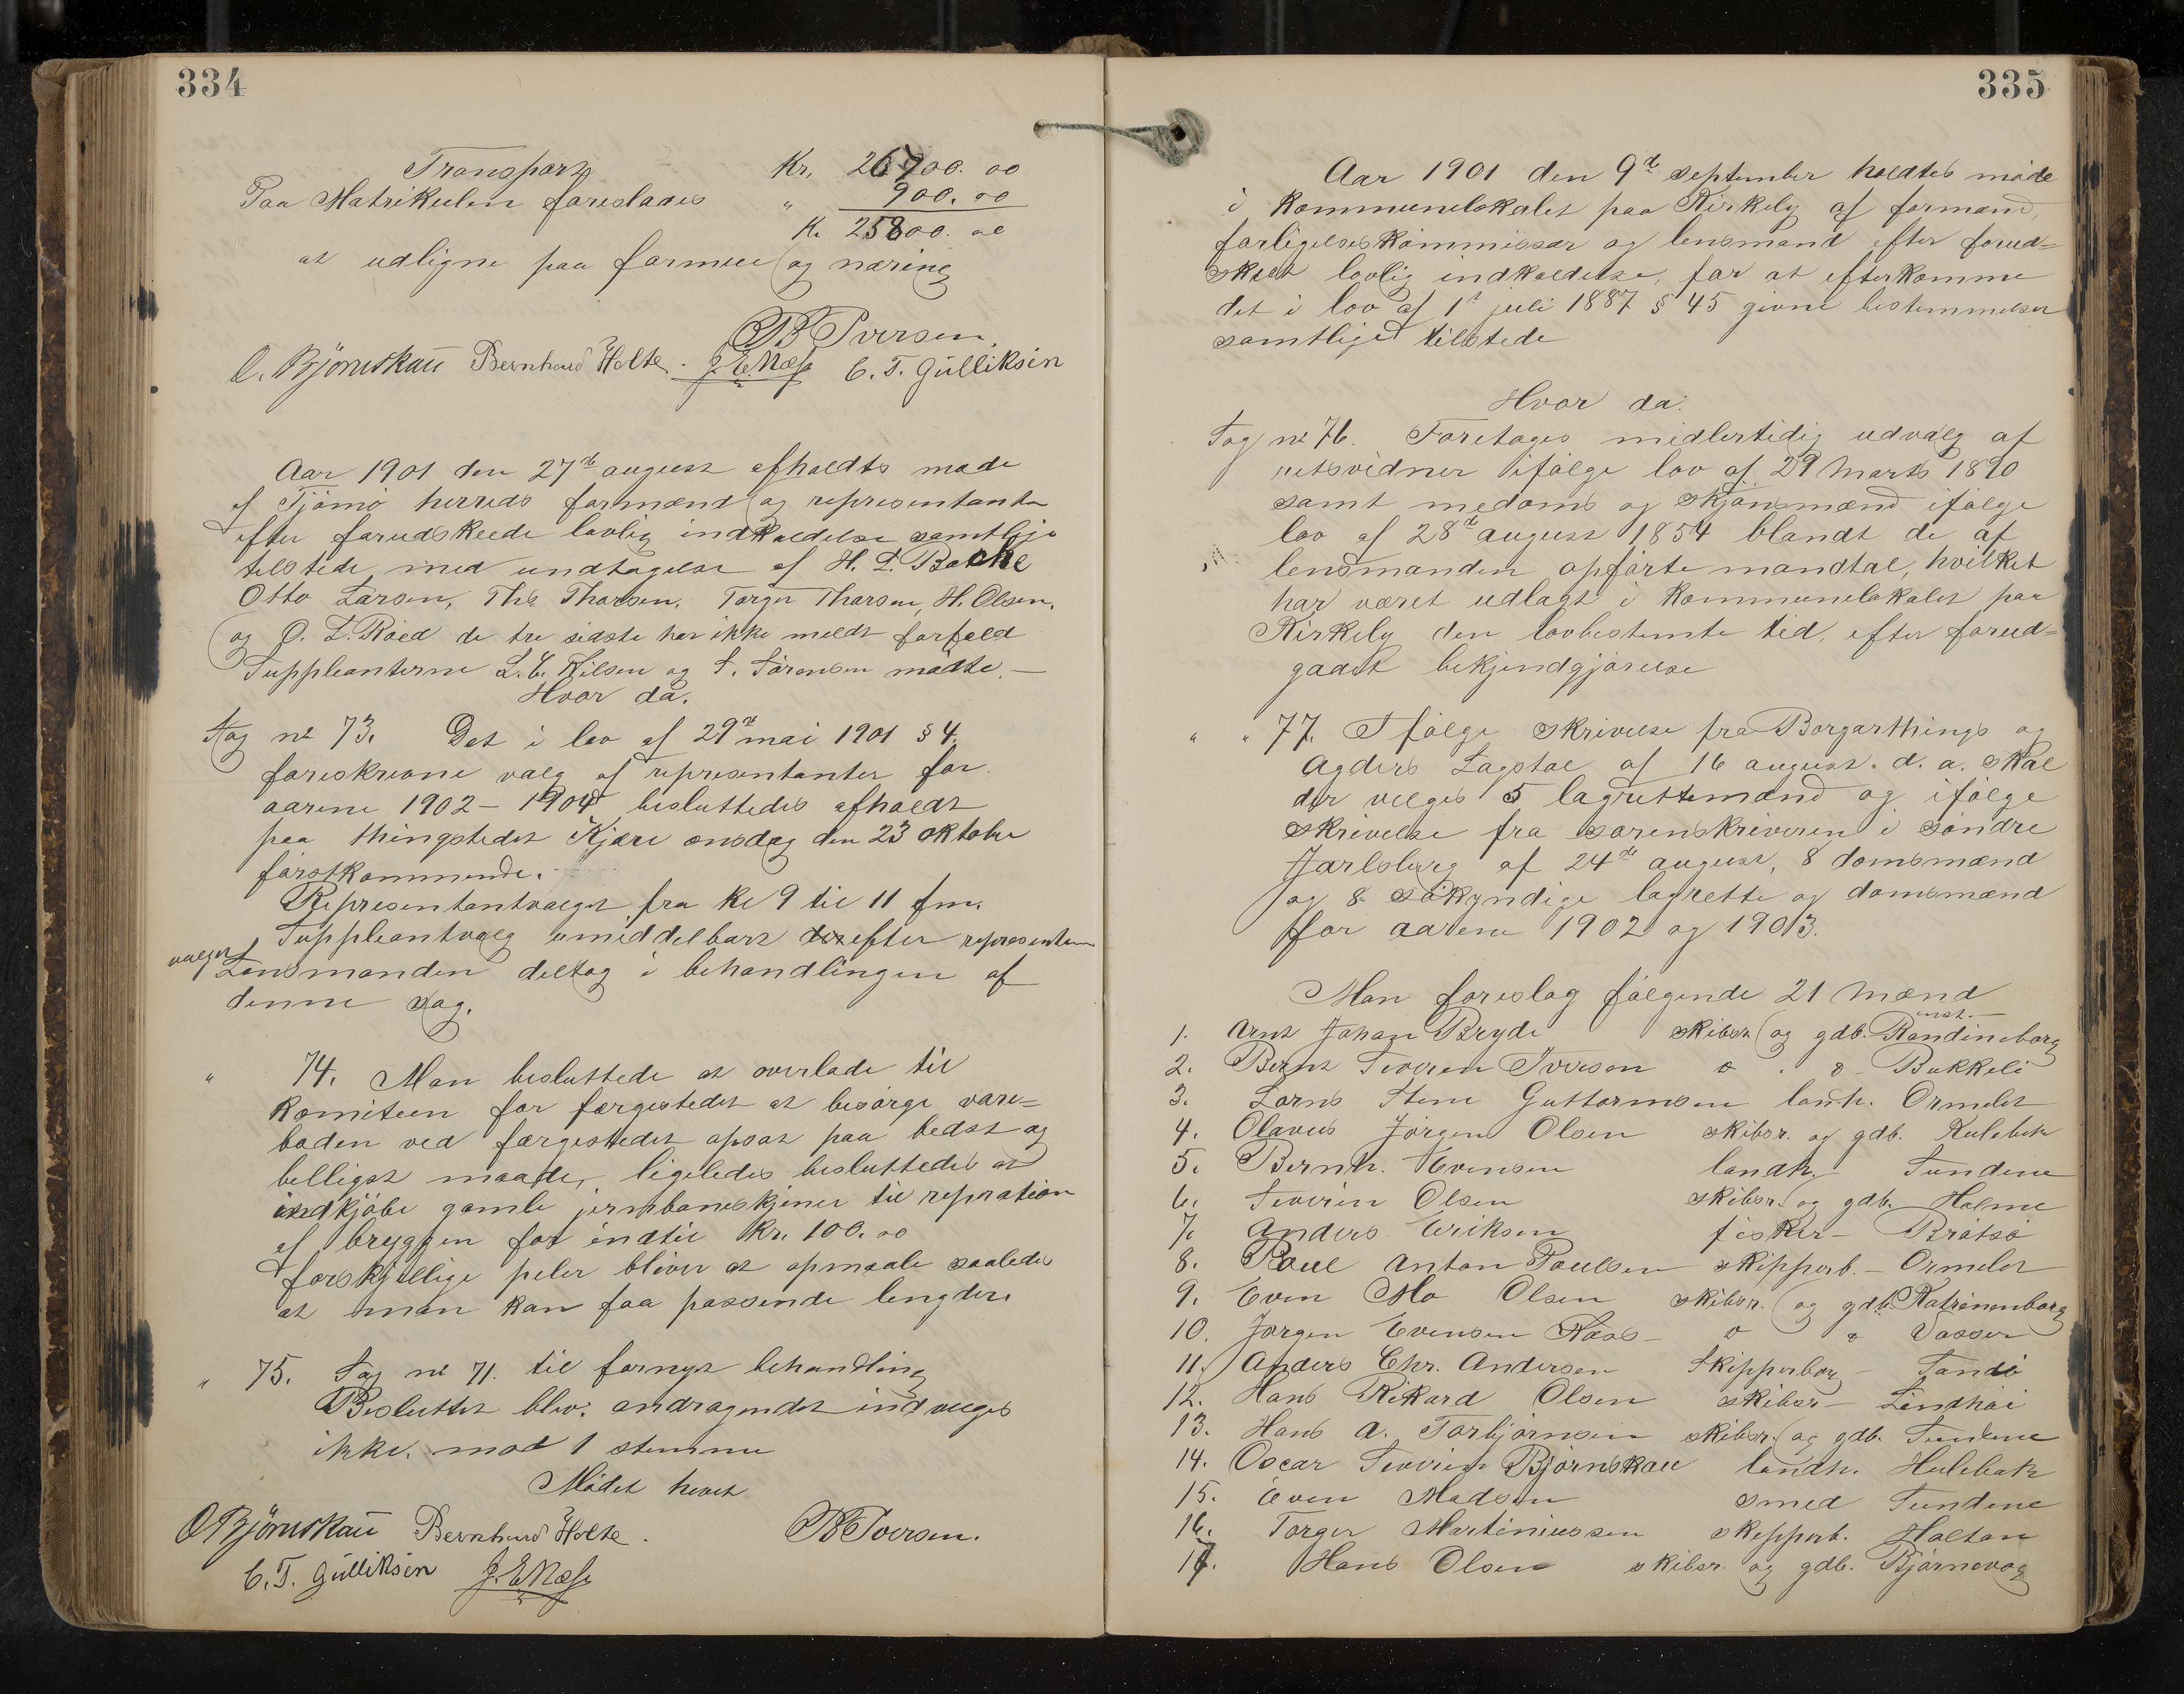 334
Transport Kr. 26700.00
Paa Matrikulen foreslaaes " 900.00
Kr 25800.00
at udligne paa formue og næring
B Iversen.
O. Björnskau Bernhard Holte. J. E. Næss C. T. Gulliksen
Aar 1901 den 27de august afholdts möde
af Tjömö herreds formænd og representanter
efter forudskeede lovlig indkaldelse samtlige
tilstede med undtagelse af H. L. Bache
Otto Larsen, Ths. Thorsen, Torger Thorsen, H. Olsen,
og O. L. Röed de tre sidste har ikke meldt forfald
Suppleanterne L. C. Nilsen og S. Sörensen mödte.—
Hvor da.
Sag no 73. Det i lov af 29de mai 1901 § 4.
foreskrevne valg af representanter for
aarene 1902–1904 besluttedes afholdt
paa thingstedet Kjære onsdag den 23 oktober
förstkommende.
Representantvalget fra kl 9 til 11 fm.
Suppleantvalg umiddelbart derefter representant
valget
Lensmanden deltog i behandlingen af
denne sag.
" 74. Man besluttede at overlade til
komiteen for færgestedet at besörge vare=
boden ved færgestedet opsat paa bedst og
belligst maade, ligeledes besluttedes at
indkjöbe gamle jernbaneskjener til repration
af bryggen for indtil kr. 100.00
forskjellige peler bliver at opmaale saaledes
at man kan faa passende lengder.
" 75. Sag no 71. til fornyet behandling
Besluttet blev: andragendet indvilges
ikke. mod 1 stemme
Mödet hævet
O Björnskau Bernhard Holte. B Iversen.
C. T. Gulliksen J. E. Næss
335
Aar 1901 den 9de september holdtes möde
i kommunelokalet paa Kirkely af formænd,
forligelseskommissær og lensmand efter forud=
skeet lovlig indkaldelse, for at efterkomme
det i lov af 1st juli 1887 § 45 givne bestemmelser
samtlige tilstede
Hvor da:
Sag no 76. Foretages midlertidig udvalg af
retsvidner ifölge lov af 29 Marts 1890
samt medoms og skjönsmænd ifölge
lov af 28de august 1854 blandt de af
lensmanden opförte mandtal, hvilket
har været udlagt i kommunelokalet paa
Kirkely den lovbestemte tid, efter forud=
gaaet bekjendgjörelse
" " 77. Ifölge skrivelse fra Borgarthings og
Agders Lagstol af 16 august. d. a. skal
der velges 5 lagrettemænd og ifölge
skrivelse fra sorenskriveren i söndre
Jarlsberg af 24de august, 8 domsmænd
og 8 sökyndige lagrette og domsmænd
for aarene 1902 og 1903.
Man foreslog fölgende 21 mænd
1. Arnt Johan Bryde skibsr. og gdb. Randineborg
2. Bernt Severin Iversen " . " Bukkeli
3. Lorns Stene Guttormsen landh. Ormelet
4. Olaves Jörgen Olsen skibsr. og gdb. Kulebek
5. Bernh. Evensen landh. Sundene
6. Severin Olsen skibsr. og gdb. Holme
7. Anders Eriksen fisker – Bratsö
8. Poul Anton Poulsen skipperb. – Ormelet
9. Even Mo Olsen skibsr. og gdb. Katrinenborg
10. Jörgen Evensen Næs – " " Vasser
11. Anders Chr. Andersen Skipperborg – Sandö
12. Hans Rikard Olsen skibsr – Lindhöi
13. Hans A. Torbjörnsen skibsr. og gdb. Sundene
14. Oscar Severin Björnskau landh. Hulebak
15. Even Madsen smed Sundene
16. Torger Martiniussen skipperb. Holtan
17. Hans Olsen skibsr. og gdb. Björnevog